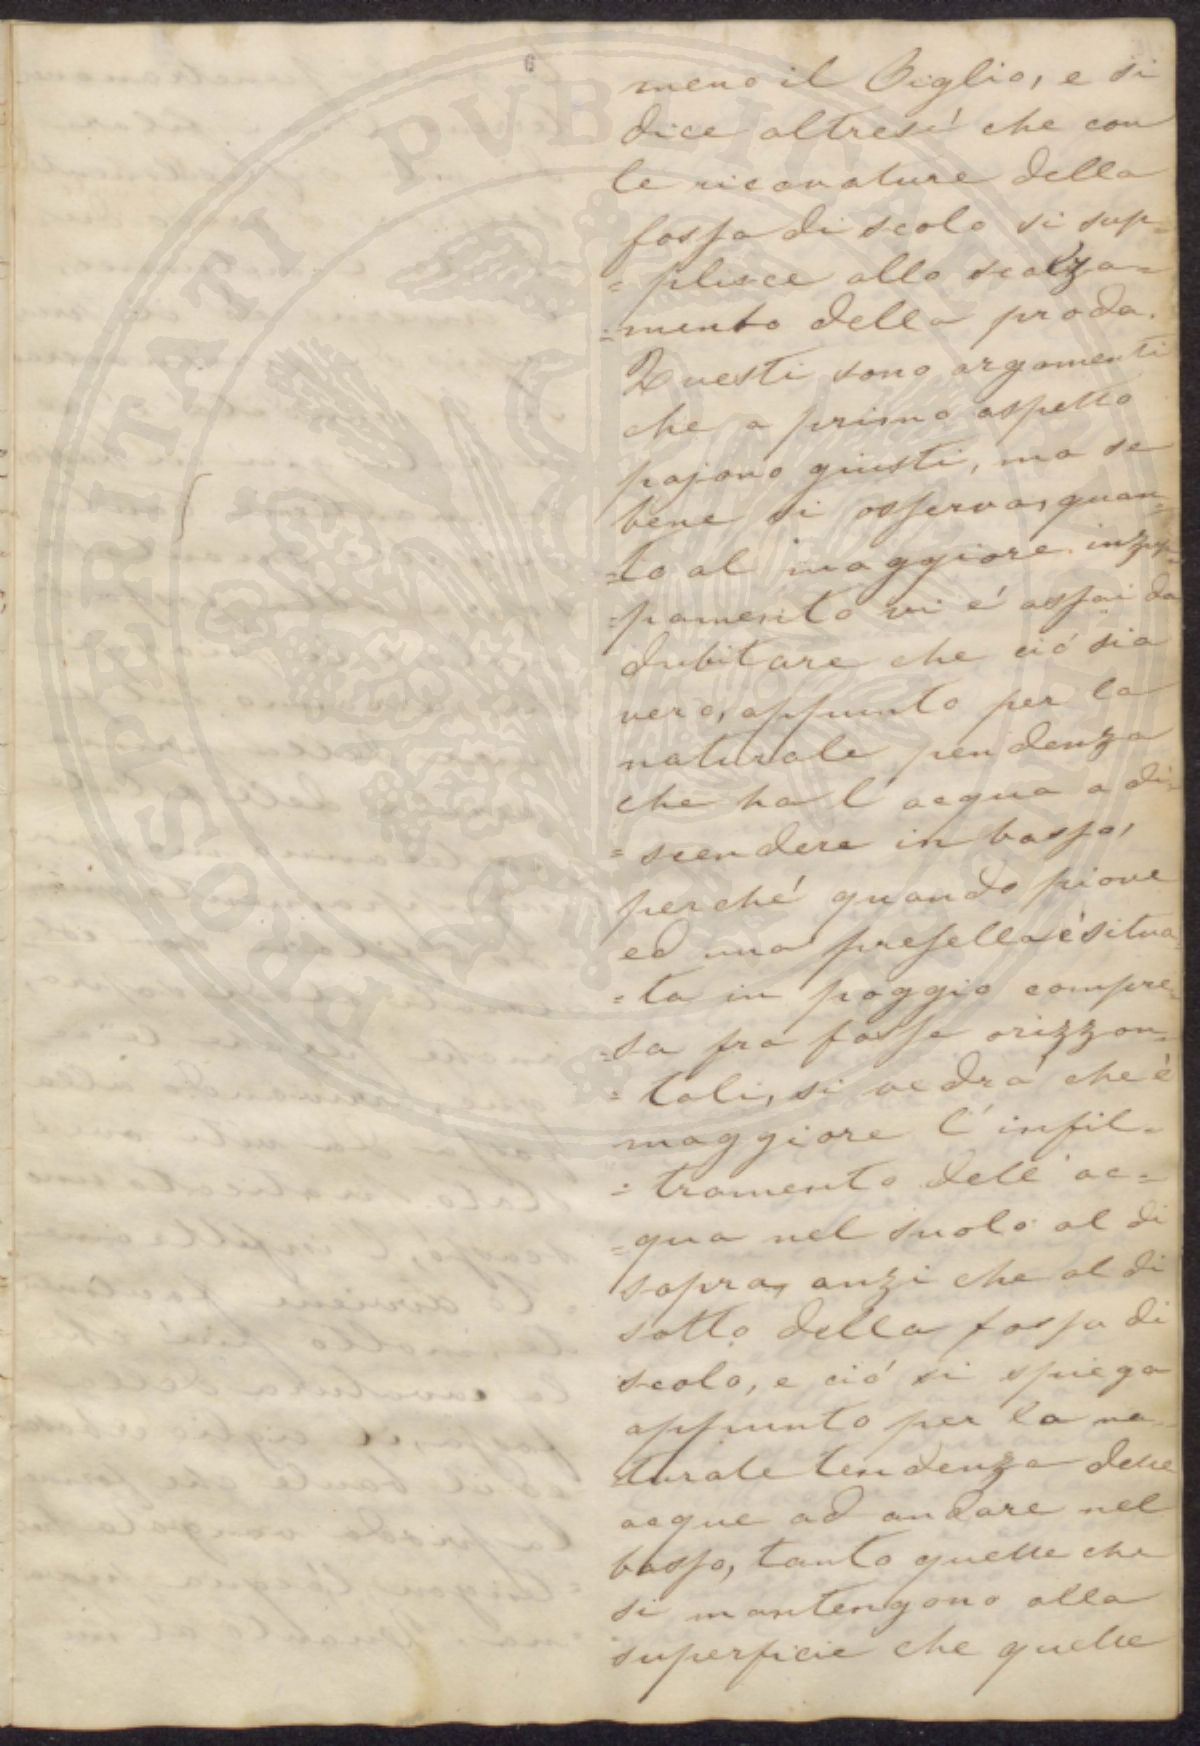 6
meno il Ciglio, e si
dice altresì che con
le ricavature della
fossa di scolo si sup-
=plisce allo scalza-
=mento della proda.
Questi sono argomenti
che a primo aspetto
pajono giusti, ma se
bene si osserva, quan-
=to al maggiore inzup-
=pamento vi é assai da
dubitare che ció sia
vero, appunto per la
naturale pendenza
che ha l'acqua a di-
=scendere in basso,
perché quando piove
ed una presella é situa-
=ta in poggio compre-
=sa fra fosse orizzon-
=tali, si vedrá che é
maggiore l'infil-
=tramento dell'ac-
=qua nel suolo al di
sopra, anzi che al di
sotto della fossa di
scolo, e ció si spiega
appunto per la na-
turale tendenza delle
acque ad andare nel
basso, tanto quelle che
si mantengono alla
superficie che quelle
PROSPERITATI PVBLICAE